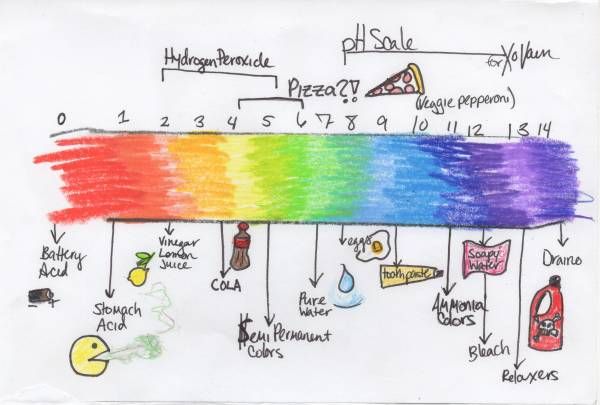 pH Scale
for XoVain
Hydrogen Peroxide
Pizza?!
(Veggie pepperoni)
0 1 2 3 4 5 6 7 8 9 10 11 12 13 14
Battery
Acid
Stomach
Acid
Vinegar
Lemon
Juice
COLA
$emi Permanent
Colors
Pure
Water
eggs
toothpaste
Ammonia
Colors
Soapy
Water
Bleach
Relaxers
Draino